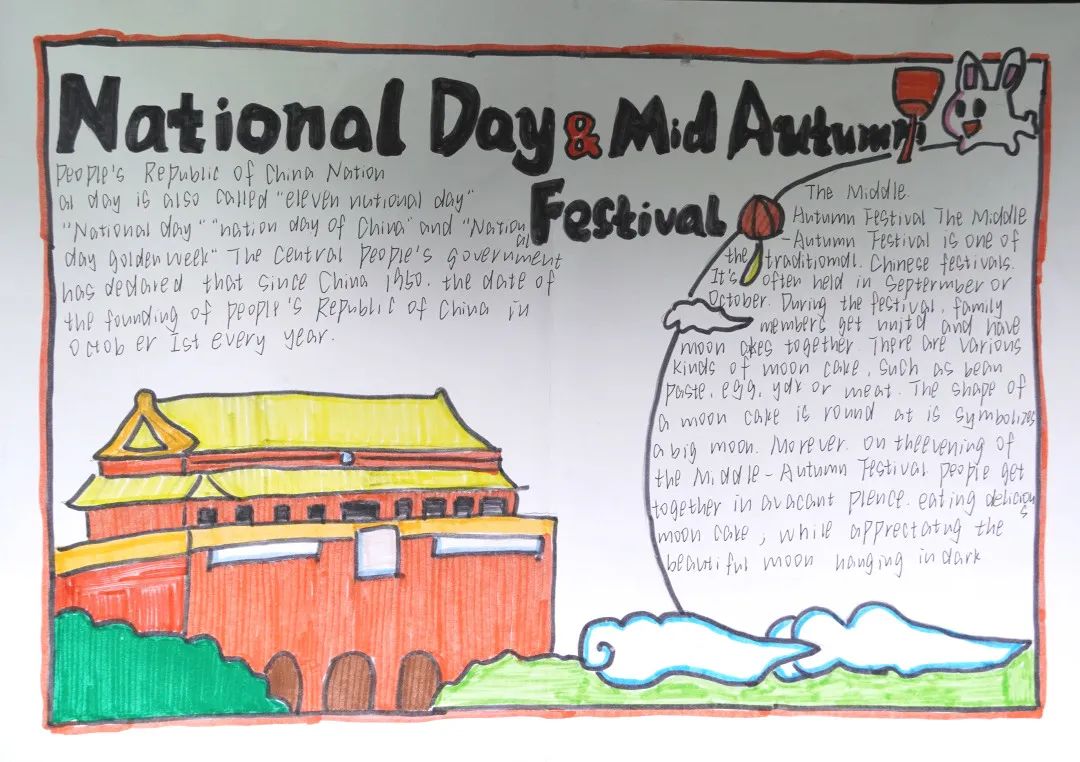 National Day & Mid Autumn
Festival
People's Republic of China Nation
al day is also called "eleven national day"
"National day" "nation day of China" and "Nation
al
day golden week" The Central People's government
has declared that since China 1950. the date of
the founding of people's Republic of China in
October 1st every year.
The Middle
Autumn Festival The Middle
-Autumn Festival is one of
the traditional. Chinese festivals.
It's often held in Septermber or
October. During the festival, family
members get unitd and have
moon akes together. There are various
kinds of moon cake, such as bean
paste, egg, yok or meat. The shape of
a moon cake is round at is symbolizes
a big moon. Morever. on theevening of
the Middle-Autumn Festival people get
together in avacant plence. eating delicious
moon cake, while apprectating the
beautiful moon hanging in dark